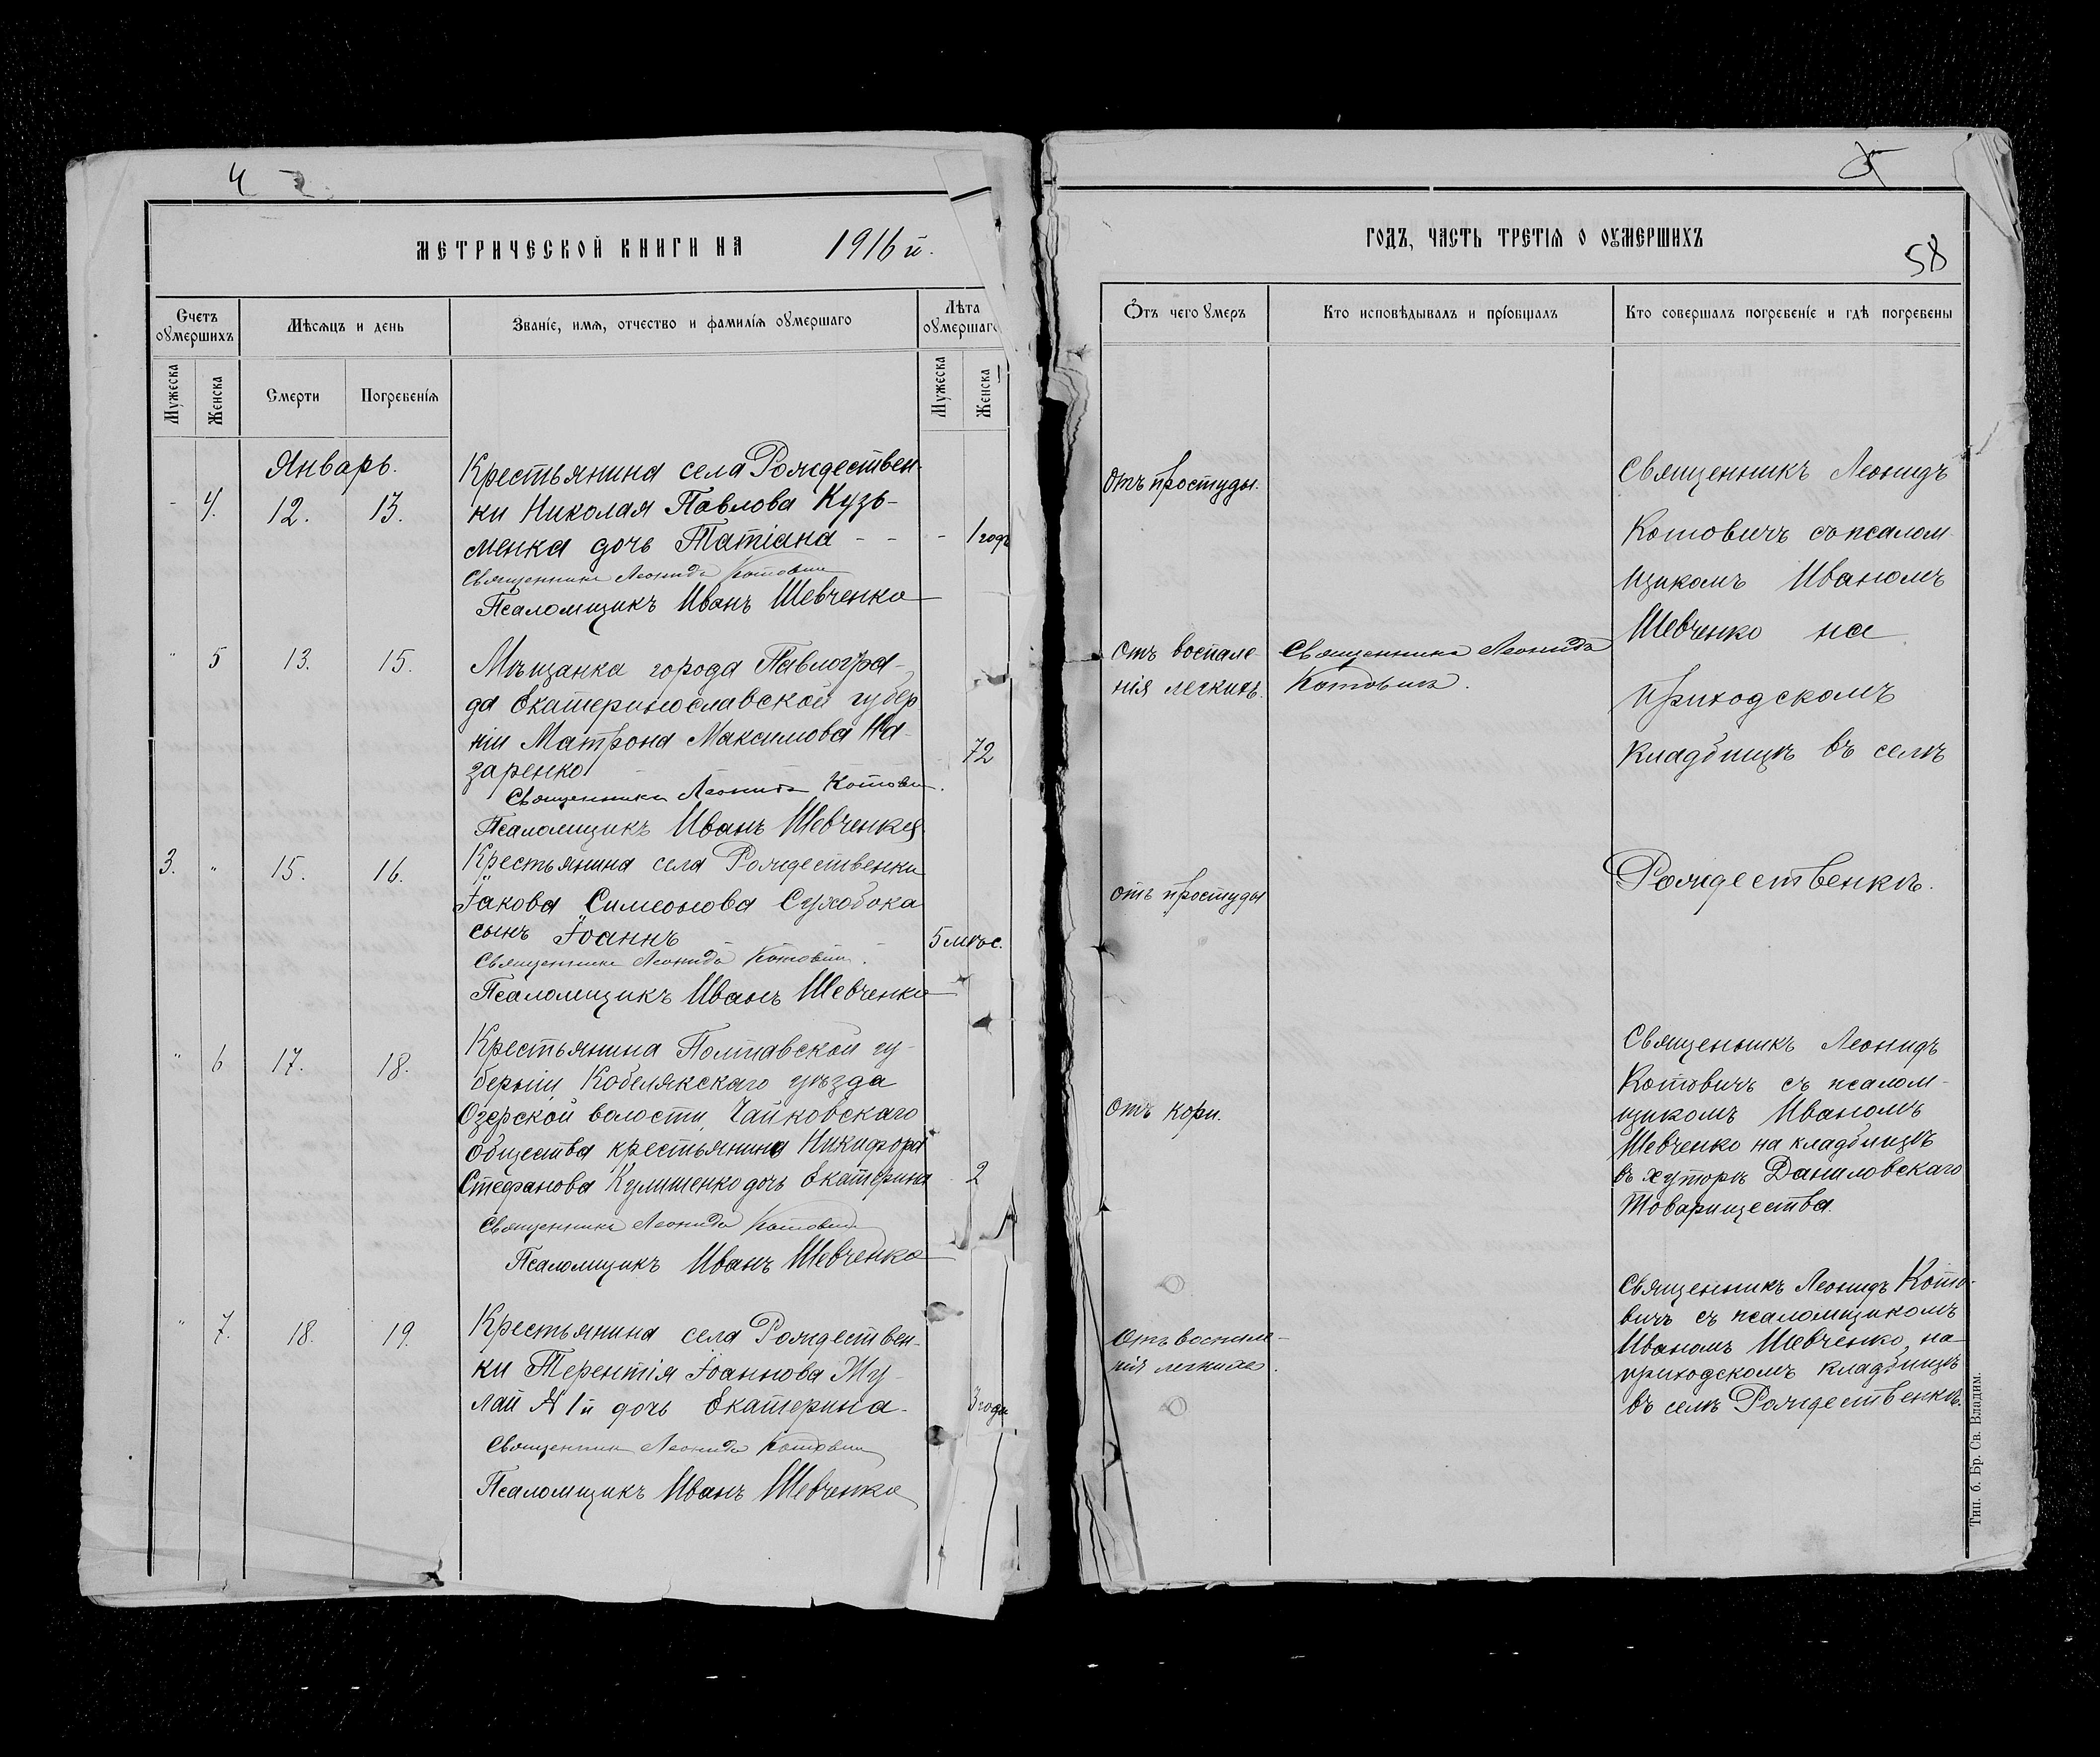 4
МЕТРИЧЕСКОЙ КНИГИ НА 1916 й.
Счетъ оумершихъ
Мѣсяцъ и день
Званіе, имя, отчество и фамилія оумершаго
Лѣта оумершаго
Мужеска
Женска
Смерти
Погребенія
Мужеска
Женска
Январь.
- 4. 12. 13.
Крестьянина села Рождествен-
ки Николая Павлова Кузь-
менка дочь Татіана - - - 1 годъ
Священникъ Леонидъ Котовичъ
Псаломщикъ Иванъ Шевченко
" 5 13. 15.
Мѣщанка города Павлогра-
да Екатеринославской губер
ніи Матрона Максимова На-
заренко 72
Священникъ Леонидъ Котович.
Псаломщикъ Иванъ Шевченко
3. " 15. 16.
Крестьянина села Рождественки
Іакова Симеонова Сухобока
сынъ Іоаннъ 5 мѣс.
Священникъ Леонидъ Котович.
Псаломщикъ Иванъ Шевченко
" 6 17. 18.
Крестьянина Полтавской гу-
берніи, Кобелякскаго уѣзда
Озерской волости, Чайковскаго
общества крестьянина Никифора
Стефанова Кулишенко дочь Екатерина 2
Священникъ Леонидъ Котович
Псаломщикъ Иванъ Шевченко
" 7. 18. 19.
Крестьянина села Рождествен-
ки Терентія Іоаннова Жу-
лай 1й дочь Екатерина. 3 года
Священник Леонидъ Котович
Псаломщикъ Иванъ Шевченко
5
ГОДЪ, ЧАСТЬ ТРЕТІЯ О ОУМЕРШИХЪ
58
Отъ чего умеръ
Кто исповѣдывалъ и пріобщалъ
Кто совершалъ погребеніе и гдѣ погребены
Отъ простуды.
Священникъ Леонидъ
Котовичъ съ псалом
щикомъ Иваномъ
Шевченко на
приходскомъ
кладбищѣ въ селѣ
Рождественкѣ.
Отъ воспале
нія легкихъ.
Священникъ Леонидъ
Котовичъ.
отъ простуды
Отъ кори.
Священникъ Леонидъ
Котовичъ съ псалом-
щикомъ Иваномъ
Шевченко на кладбищѣ
въ хуторѣ Даниловскаго
Товарищества.
Отъ воспале-
нія легкихъ.
Священникъ Леонидъ Кото-
вичъ съ псаломщикомъ
Иваномъ Шевченко, на
приходскомъ кладбищѣ
въ селѣ Рождественкѣ.
Тип. б. Бр. Св. Владим.